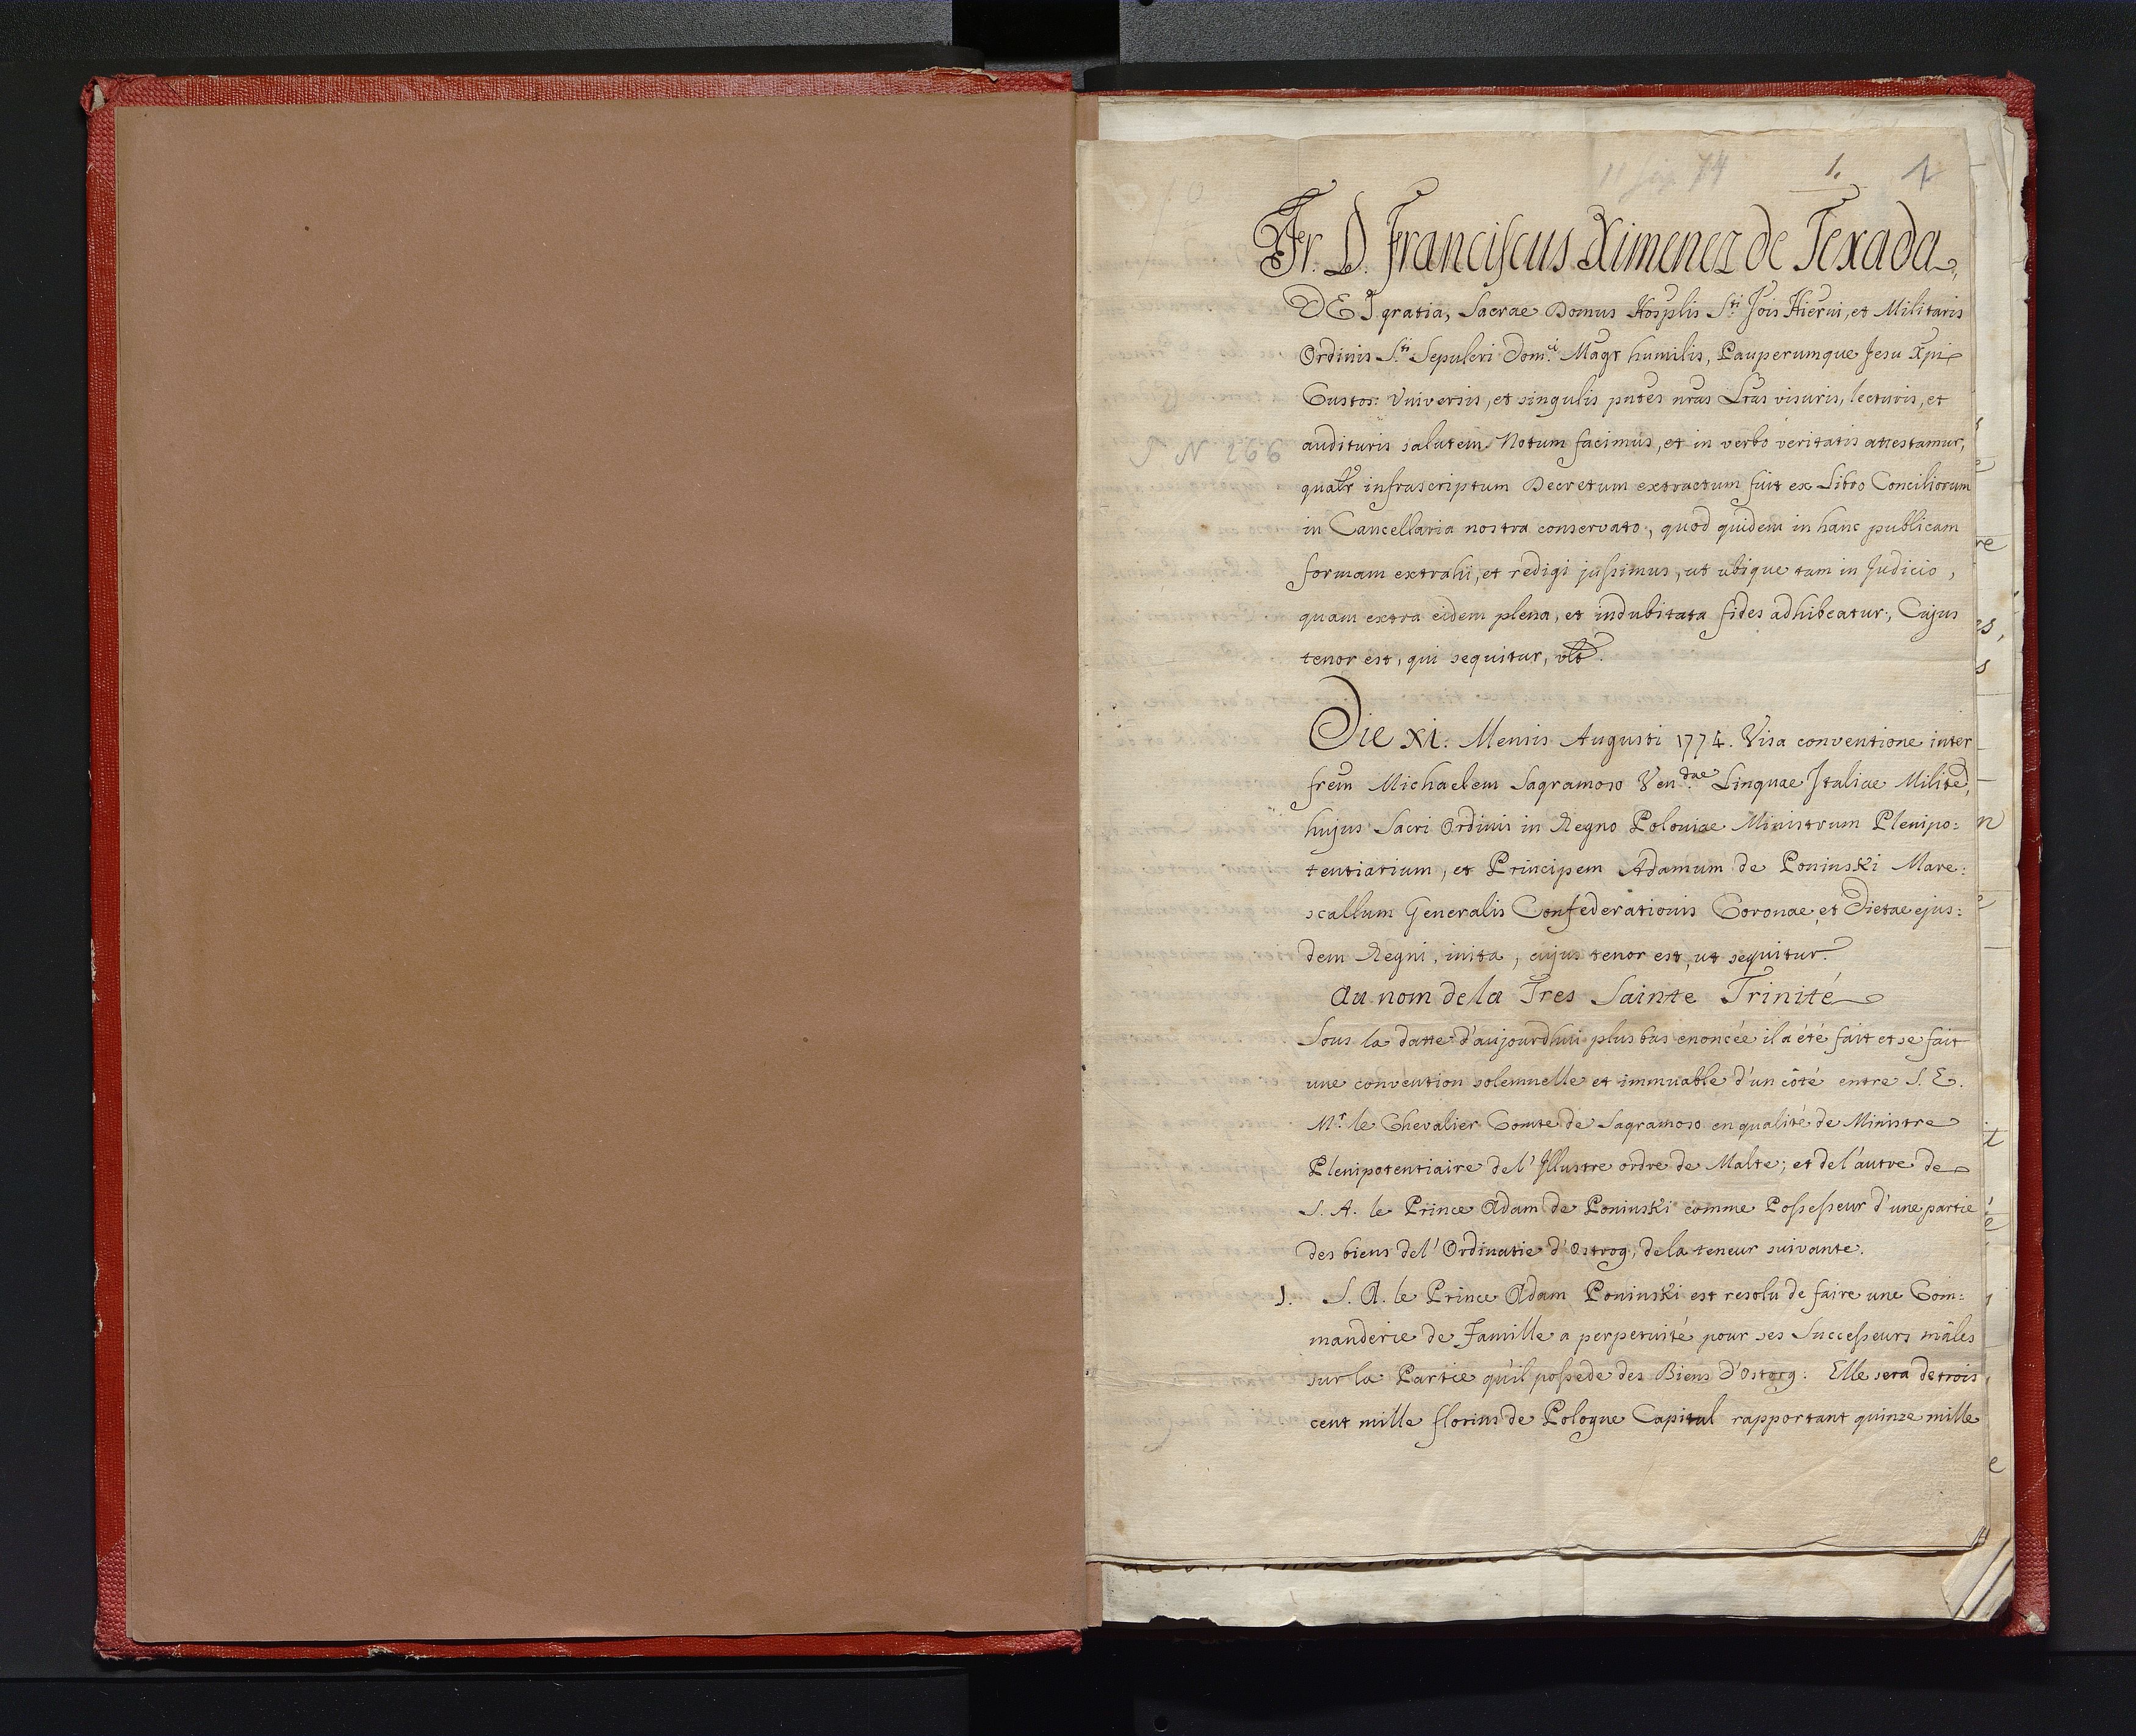 11 74 1. 1
Fr. D. Franciscus Ximenez de Texada,
DEI gratia, Sacrae Domus Hosplis Sti Jois Hierni, et Militaris
Ordinis Sti Sepulcri Domci Magr humilis, Pauperumque Jesu Xpi
Custos: Universis, et singulis pntes nras Lras visuris, lecturis, et
audituris salutem. Notum facimus, et in verbo veritatis attestamur,
qualr infrascriptum Decretum extractum fuit ex Libro Conciliorum
in Cancellaria nostra conservato, quod quidem in hanc publicam
formam extrahi, et redigi jussimus, ut ubique tam in Judicio,
quam extra eidem plena, et indubitata fides adhibeatur; Cujus
tenor est, qui sequitur, vlt.
Die XI. Mensis Augusti 1774. Visa conventione inter
frem Michaelem Sagramoso Vendae Linguae Italiae Milite,
hujus Sacri Ordinis in Regno Poloniae Ministrum Plenipo:
tentiarium, et Principem Adamum de Poninski Mare:
scallum Generalis Confederationis Coronae, et Dietae ejus:
dem Regni, inita, cujus tenor est, ut sequitur.
Au nom de la Tres Sainte Trinité
Sous la datte d'aujourdhui plus bas enoncée il a été fait et se fait
une convention solemnelle et immuable d'un côté entre S. E.
Mr. le Chevalier Comte de Sagramoso en qualité de Ministre
Plenipotentiaire de l'Illustre ordre de Malte; et de l'autre de
S. A. le Prince Adam de Poninski comme Possesseur d'une partie
des biens de l'Ordinatie d'Ostrog, de la teneur suivante.
1. S. A. le Prince Adam Poninski est resolu de faire une Com:
manderie de Famille a perpetuité pour ses Successeurs mâles
sur la Partie qu'il possede des Biens d'Ostorg: Elle sera de trois
cent mille florins de Pologne Capital rapportant quinze mille